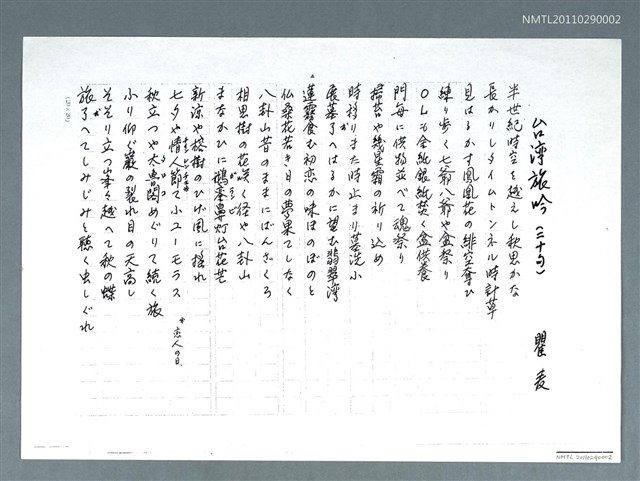 NMTL20110290002
台湾旅吟(二十句)
瞿麦
半世紀時空を越えし秋思かな
長かりしタイムトンネル時計草
見はるかす鳳凰花の緋空奪ひ
練り歩く七爺八爺や盆祭り
OLも金紙銀紙焚く盆供養
門毎に供物並べて魂祭り
掃苔や幾星霜の祈り込め
時移りまた時止まり墓洗ふ
展墓了へはるかに望む翡翠湾
蓮霧食む初恋の味ほのぼのと
仏桑花若き日の夢果てしなく
八卦山昔のままにばんざくろ
相思樹の花咲く径や八卦山
まなかひに鵝鑾鼻灯台花芒
新涼や榕樹のひげ風に揺れ
七夕や情人節てふユーモラス
*恋人の日
秋立つや大魯閣めぐりて続く旅
ふり仰ぐ巌の裂れ目の天高し
そそり立つ峯々越へて秋の蝶
旅了へてしみじみと聴く虫しぐれ
(20×20)
NMTL 20110290002